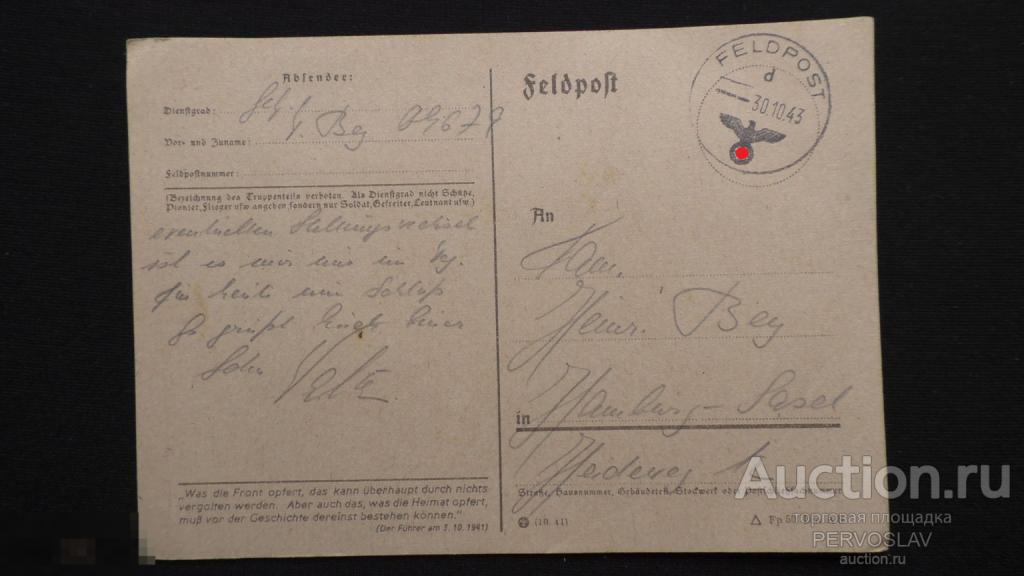 Absender:
Dienstgrad: Gefr.
Vor- und Zuname: Bey 09679
Feldpostnummer:
(Bezeichnung des Truppenteils verboten. Als Dienstgrad nicht Schütze,
Pionier, Flieger usw angeben sondern nur Soldat, Gefreiter, Leutnant usw.)
eventuellen Stellungswechsel
ist es mir
für heute nun Schluß
Es grüßt Euch Euer
Sohn
„Was die Front opfert, das kann überhaupt durch nichts
vergolten werden. Aber auch das, was die Heimat opfert,
muß vor der Geschichte dereinst bestehen können.“
(Der Führer am 3. 10. 1941)
Feldpost
FELDPOST
d
30.10.43
An
Fam.
Heinr. Bey
in Hamburg-Sasel
Straße, Hausnummer, Gebäudeteil, Stockwerk oder
(10. 41)
Fp
Auction.ru
торговая площадка
PERVOSLAV
auction.ru